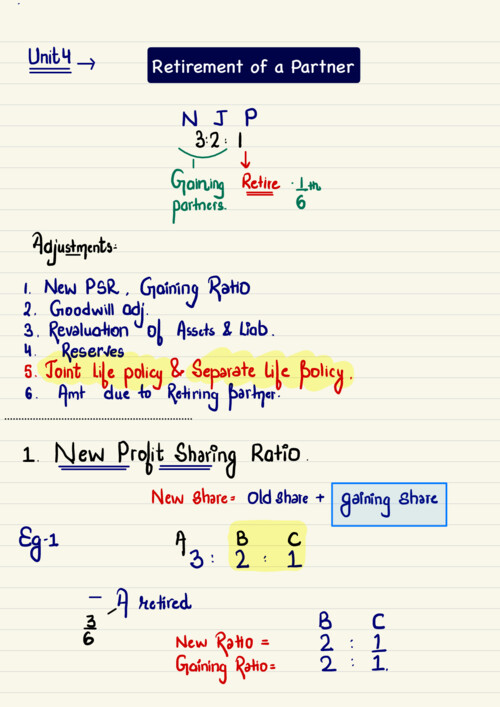 Unit 4 → Retirement of a Partner
N J P
3:2:1
Gaining partners. Retire 1/6 th
Adjustments:-
1. New PSR, Gaining Ratio
2. Goodwill adj.
3. Revaluation of Assets & Liab.
4. Reserves
5. Joint Life policy & Separate Life Policy.
6. Amt due to Retiring partner.
1. New Profit Sharing Ratio.
New Share = Old Share + gaining Share
Eg-1 A B C
3 : 2 : 1
– A retired
3/6
B C
New Ratio = 2 : 1
Gaining Ratio = 2 : 1.